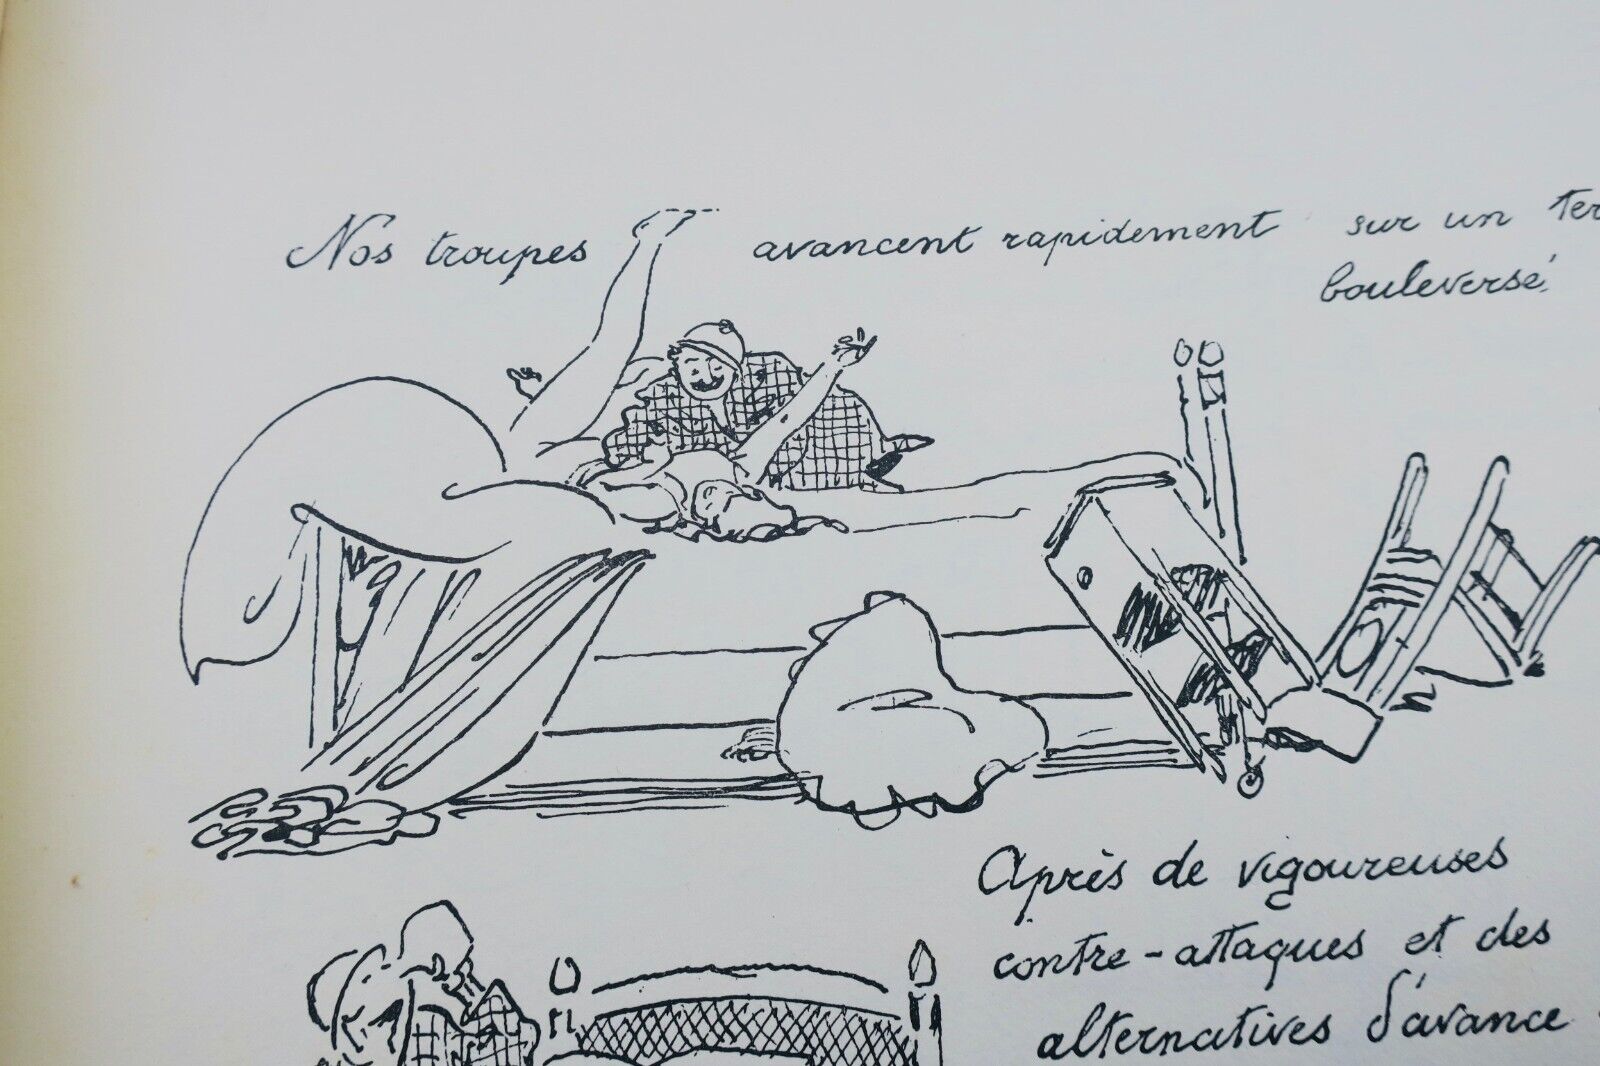 Nos troupes avancent rapidement sur un
bouleversé.
Après de vigoureuses
contre-attaques et des
alternatives d'avance